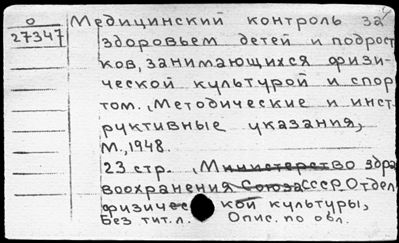 о
27347
Медицинский контроль за
здоровьем детей и подрост
ков, занимающихся физи-
ческой культурой и спор
том. Методические и инст
руктивные указания,
М., 1948.
23 стр. Министерство здра
воохранения Союза ССР. Отдел
физической культуры,
Без тит. л. Опис. по обл.